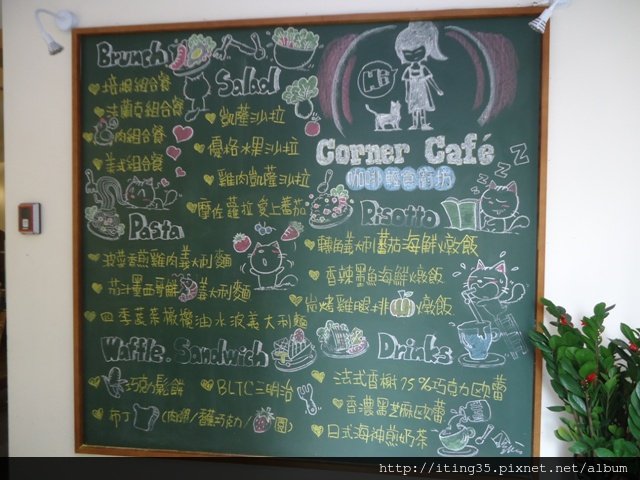 Brunch
培根組合餐
法蘭克組合餐
肉組合餐
美式組合餐
Salad
凱薩沙拉
優格水果沙拉
雞肉凱薩沙拉
摩佐蘿拉愛上番茄
Hi
Corner Café
咖啡輕食廚坊
Pasta
波菜香煎雞肉義大利麵
茄汁墨西哥鮮義大利麵
四季蔬菜橄欖油水波義大利麵
Risotto
轉角義大利蕃茄海鮮燉飯
香辣墨魚海鮮燉飯
炭烤雞腿排燉飯
Waffle. Sandwich
巧克力鬆餅
BLTC三明治
布丁
Drinks
法式香榭75%巧克力歐蕾
香濃黑芝麻歐蕾
日式海神煎奶茶
ZZZ
http://iting35.pixnet.net/album